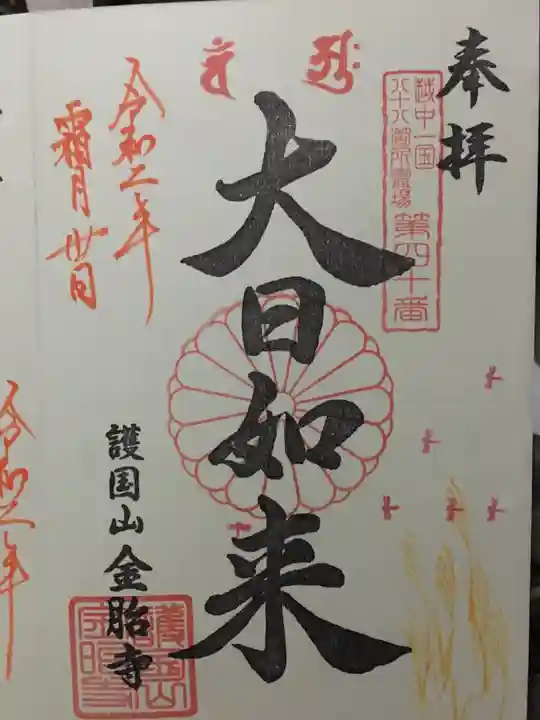 奉拝
越中一国
八十八箇所霊場
第四十番
大日如来
護国山金胎寺
令和二年
霜月廿日
令和二年